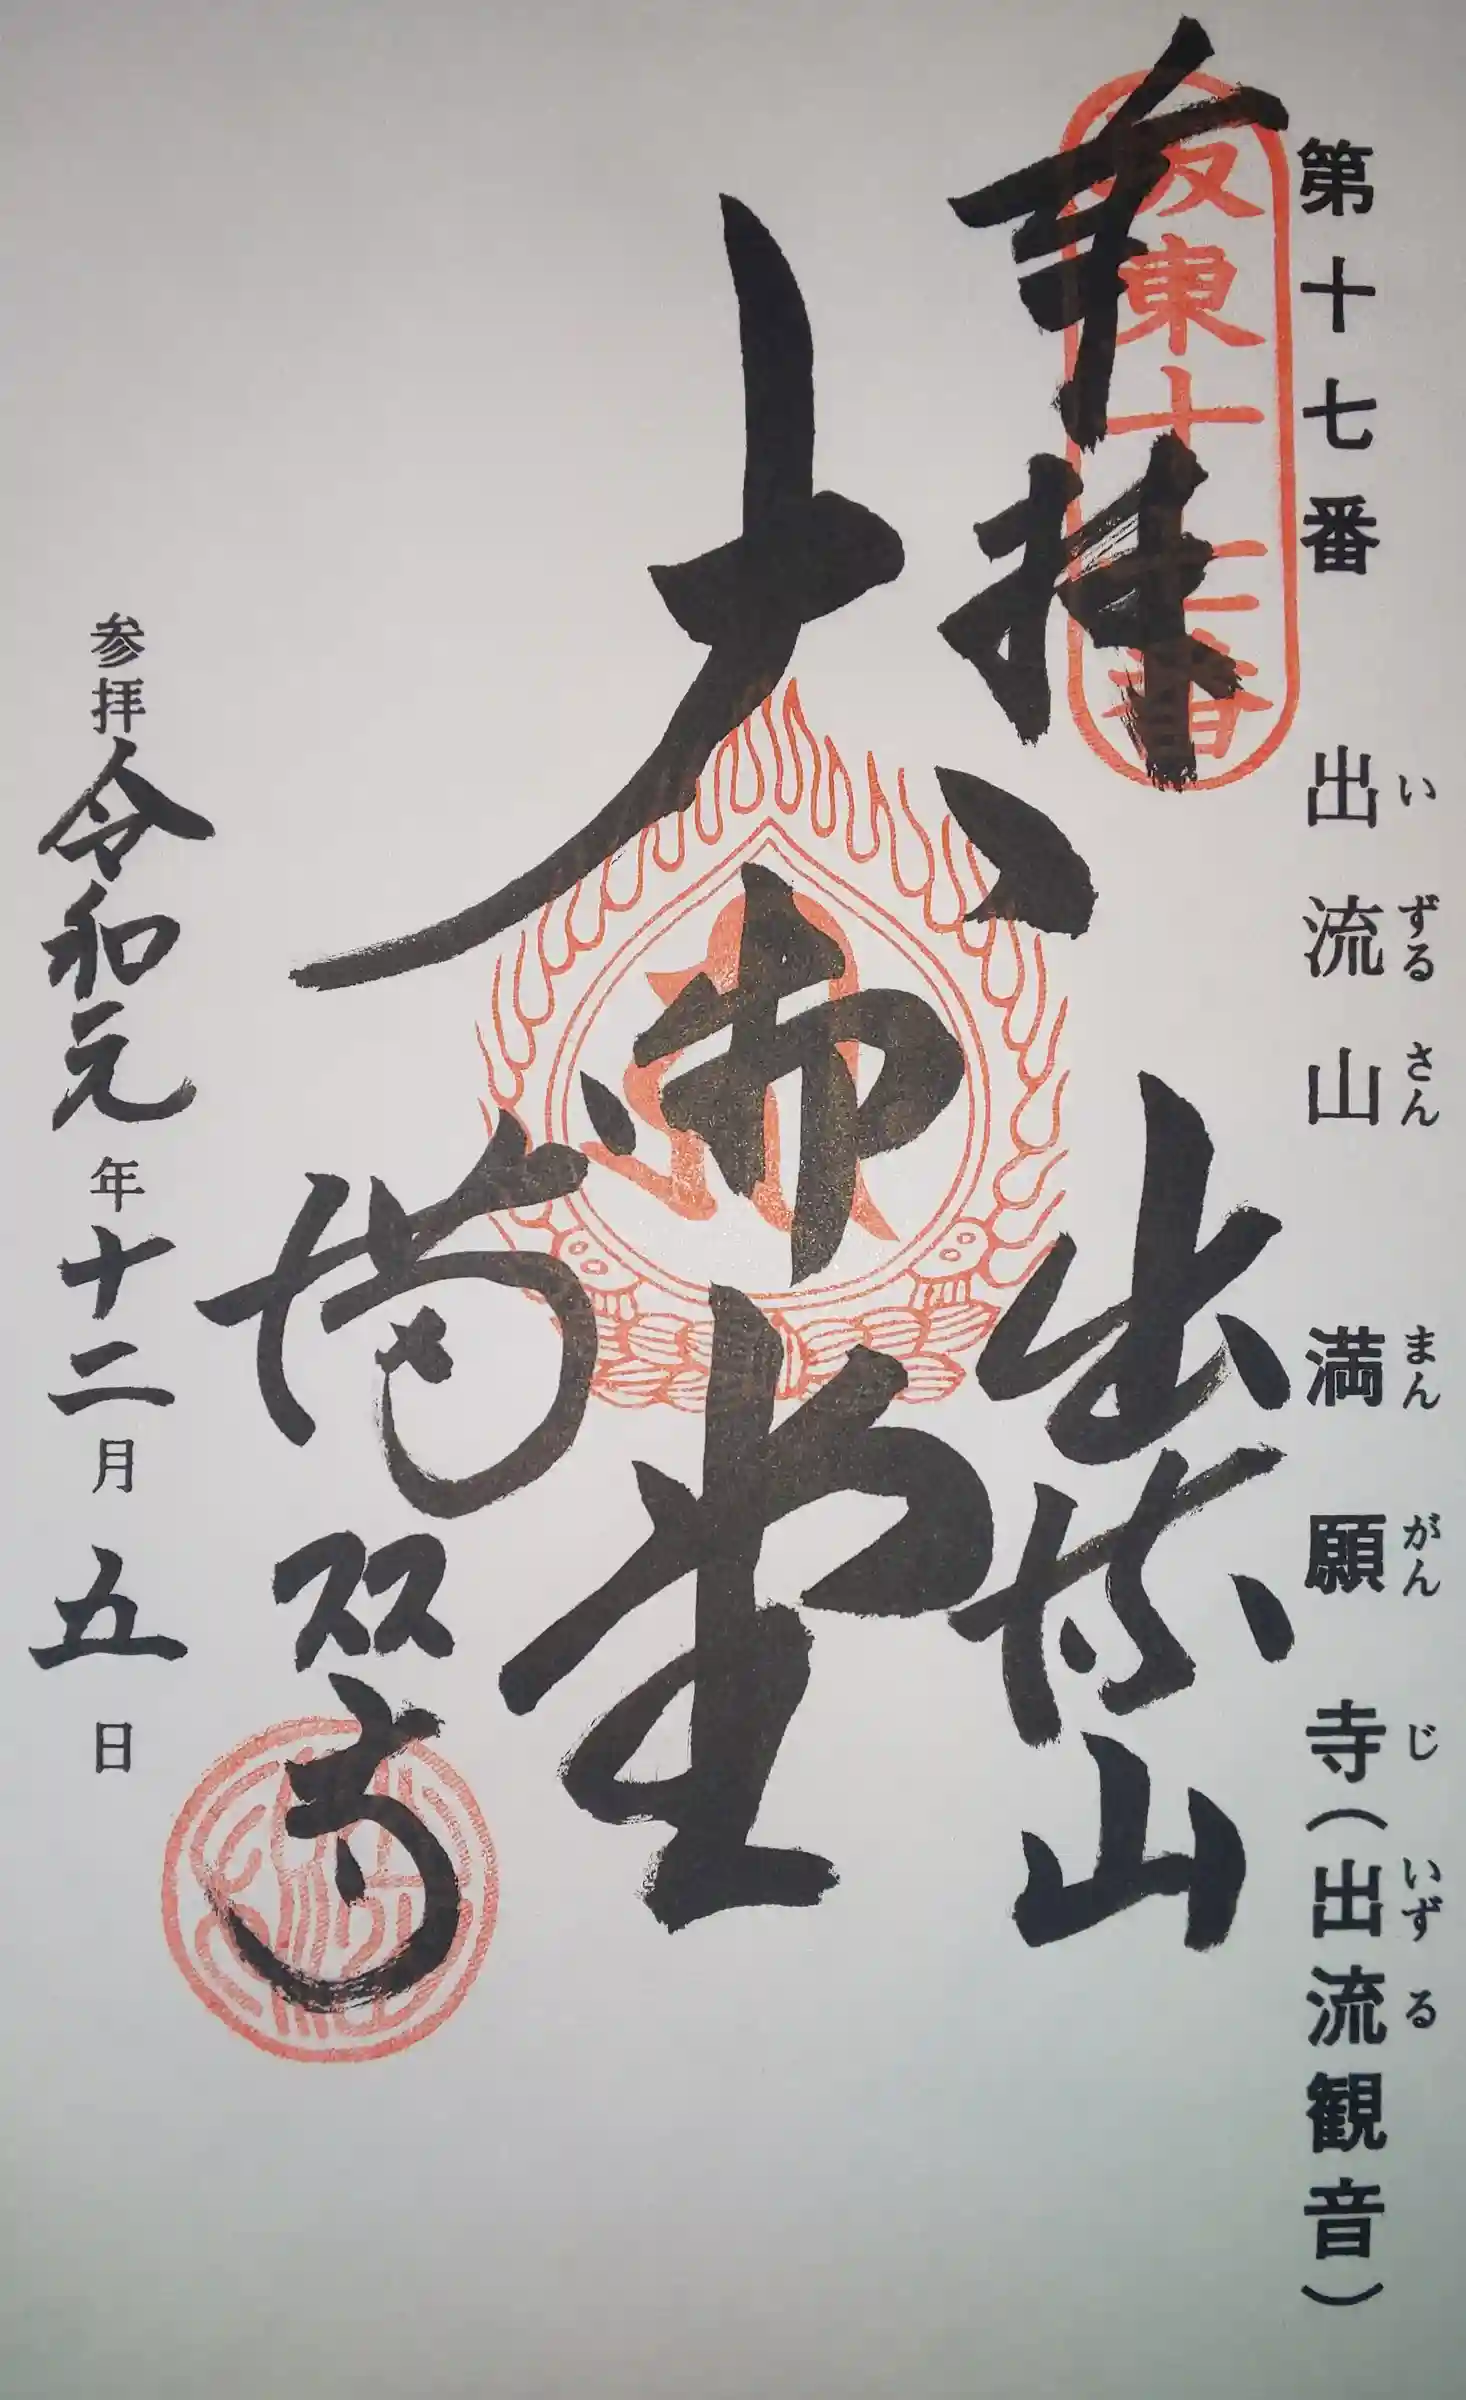 第十七番 出流山 満願寺(出流観音)
いずるさん まんがんじ いずる
坂東十七番
奉拝 出流山
大御堂
満願寺
参拝令和元年十二月五日